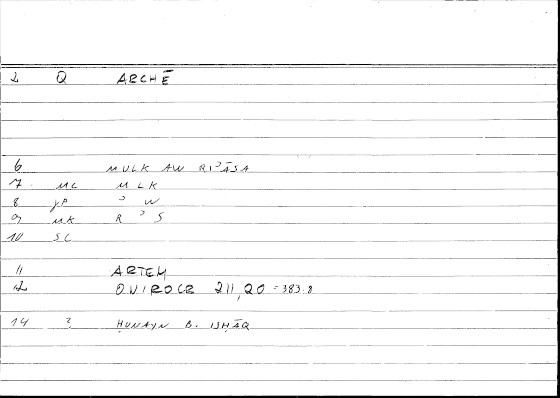 2 Q ARCHĒ
6 MULK AW RIʾĀSA
7. ML MLK
8 JP ʾ W
9 MK R ʾ S
10 SC
11 ARTEM
12 ONIROCR 211,20 = 383.8
14 ? ḤUNAYN B. ISḤĀQ